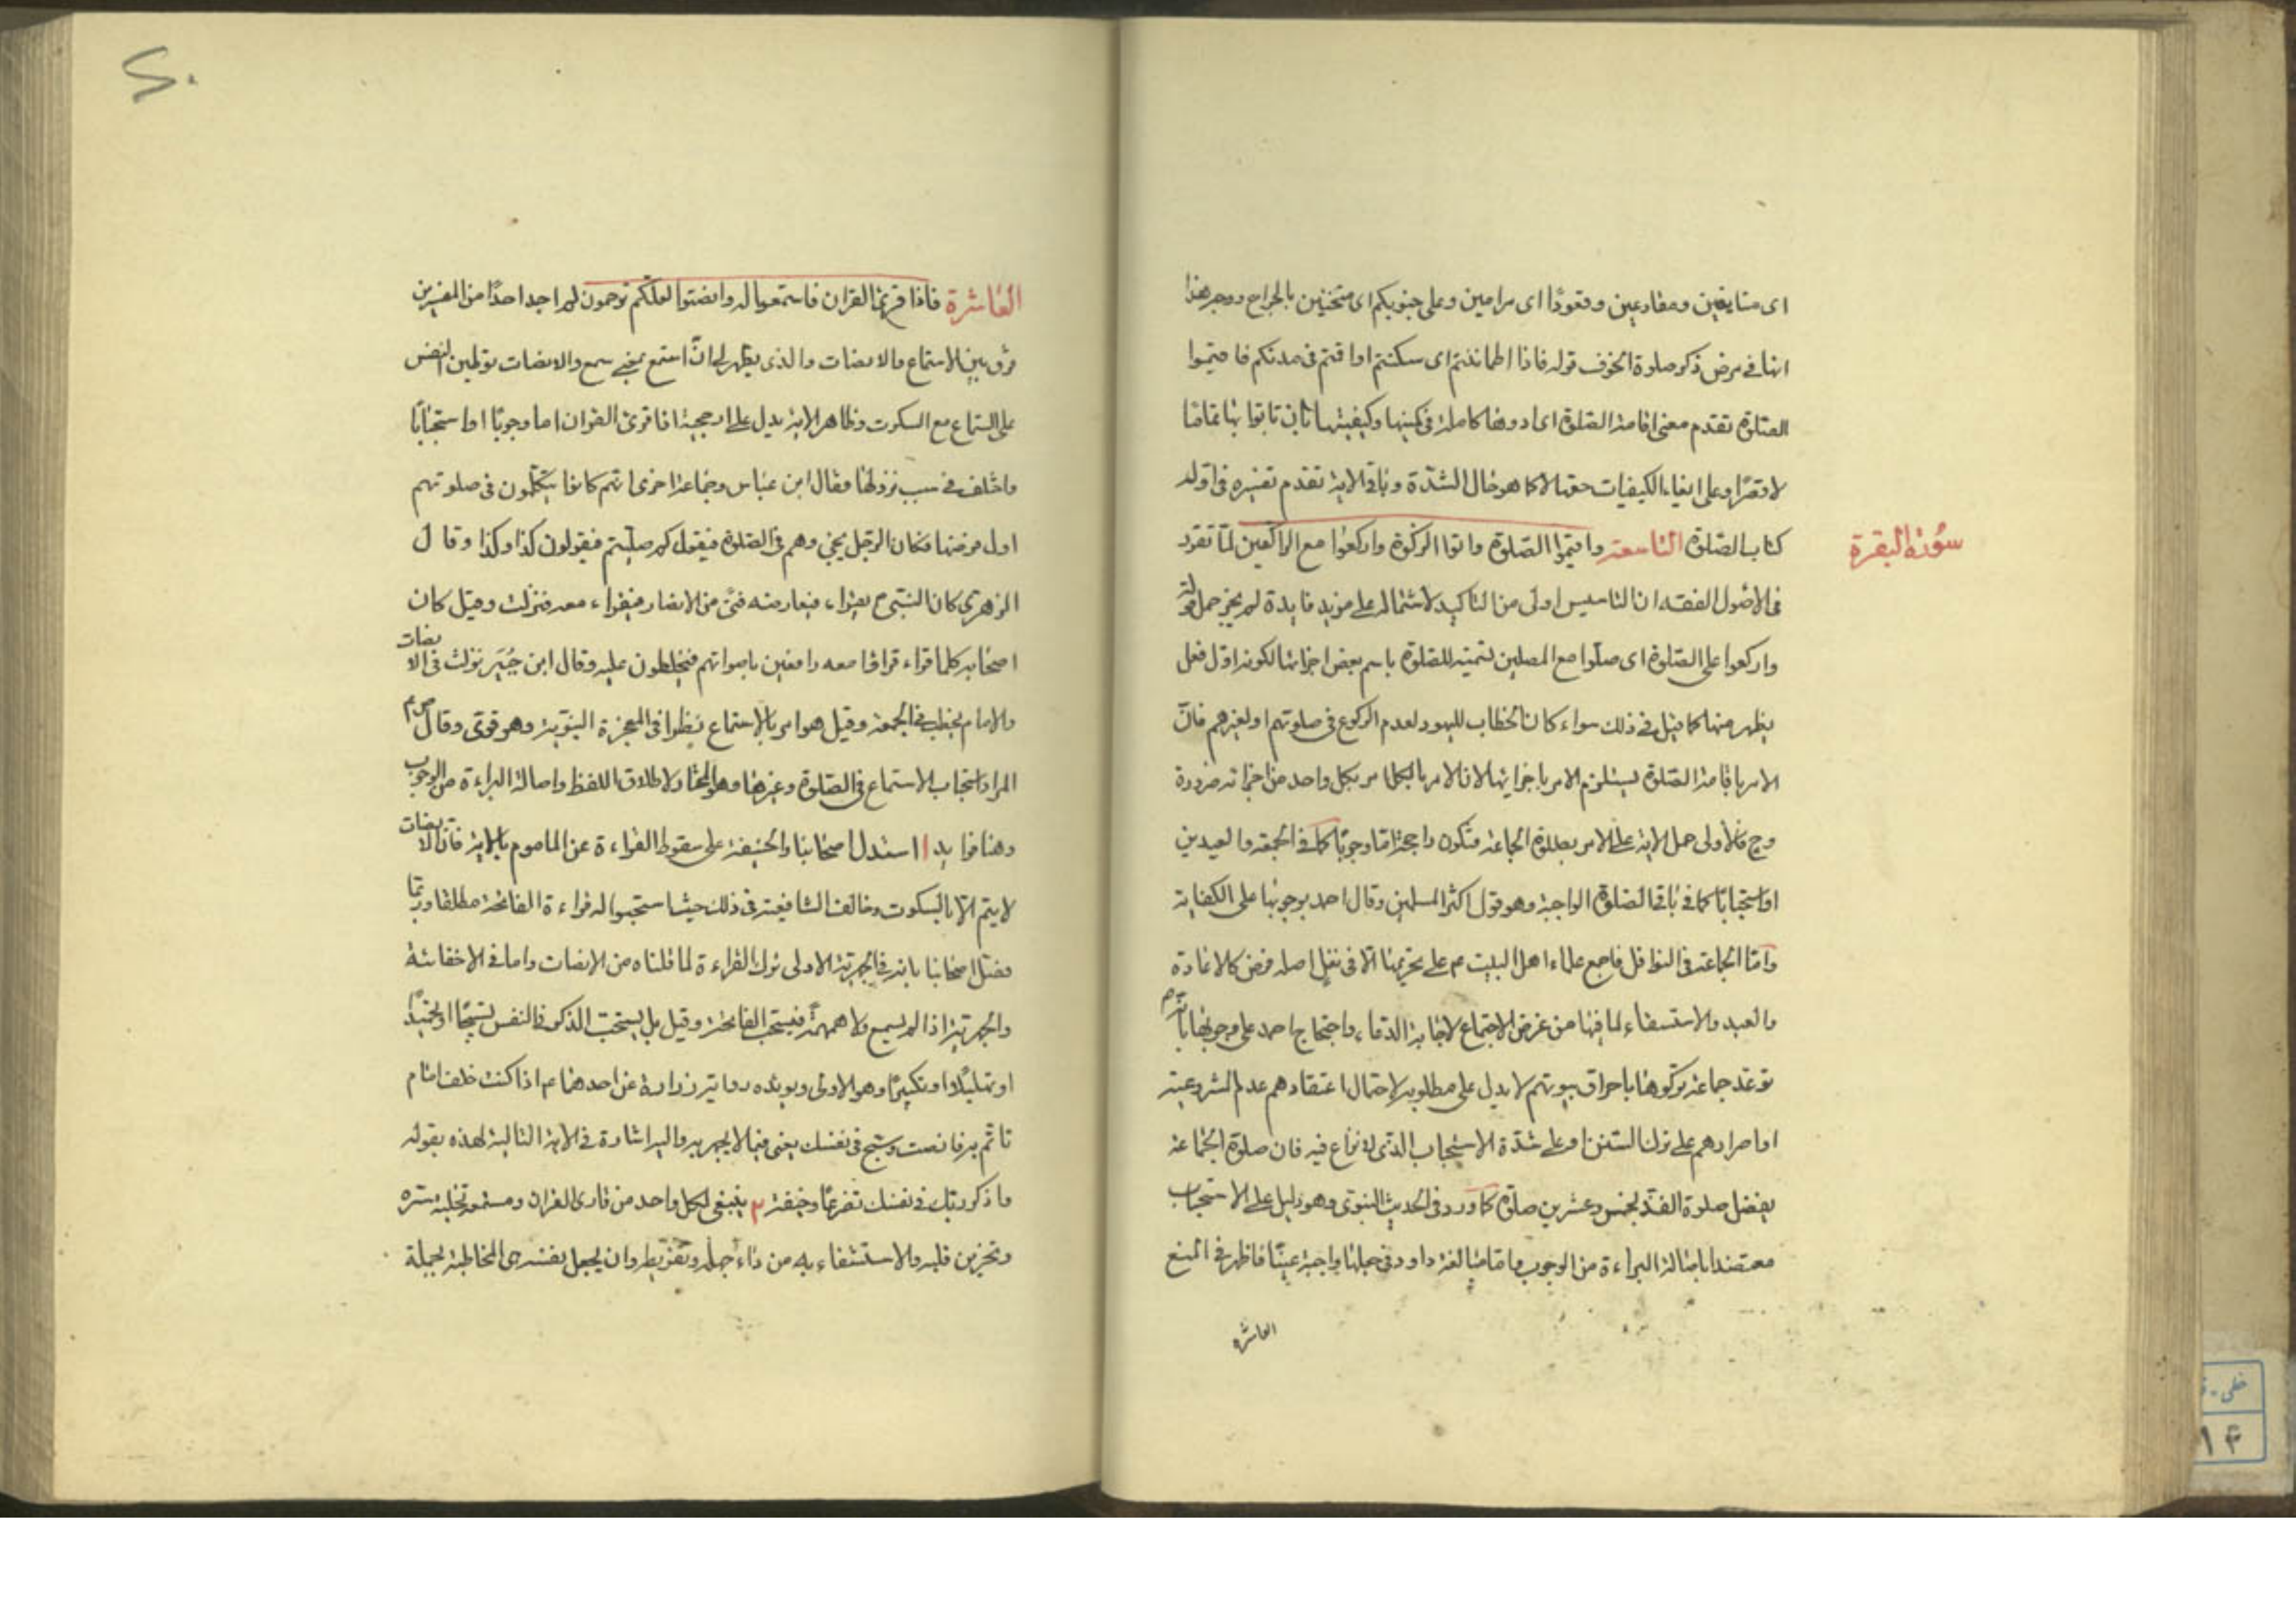 اى مسايفين ومقارعين وقعودًا اى مرامين وعلى جنوبكم اى مثخنين بالجراح ووجه هذا
انها فى معرض ذكر صلوة الخوف قوله فاذا اطمأننتم اى سكنتم او اقمتم فى مدنكم فاقيموا
الصلوة تقدم معنى اقامة الصلوة اى ادوها كاملة فى كميتها وكيفيتها بان تاتوا بها تمامًا
لا قصرًا وعلى ايفاء الكيفيات حقها لا كما هو حال الشدّة وباقى الاية تقدم تفسيره فى اوله
كتاب الصلوة التاسعة واقيموا الصلوة واتوا الزكوة واركعوا مع الراكعين لمّا تقرر
سورة البقرة
فى الاصول الفقه ان التاسيس اولى من التاكيد لاشتماله على مزيد فايدة لم يجز حمل قوله
واركعوا على الصلوة اى صلّوا مع المصلين تسمية للصلوة باسم بعض اجزائها لكونه اوّل فعل
يظهر منها كما قيل فى ذلك سواء كان الخطاب لليهود لعدم الركوع فى صلوتهم او لغيرهم فانّ
الامر باقامة الصلوة يستلزم الامر باجزائها لان الامر بالكل امر بكل واحد من اجزائه ضرورة
وح فالاولى حمل الاية على الامر بصلوة الجماعة فتكون راجحة امّا وجوبًا كما فى الجمعة والعيدين
او استحبابًا كما فى باقى الصلوة الواجبة وهو قول اكثر المسلمين وقال احمد بوجوبها على الكفاية
وامّا الجماعة فى النوافل فاجمع علماء اهل البيت ع م على تحريمها الّا فى نفل اصله فرض كالاعادة
والعيد والاستسقاء لما فيها من غرض الاجتماع لاجابة الدعاء واحتجاج احمد على وجوبها بانّه ص م
توعّد جماعة تركوها باحراق بيوتهم لا يدل على مطلوبه لاحتمال اعتقادهم عدم المشروعية
او اصرارهم على ترك السنن او على شدّة الاستحباب الذى لا نزاع فيه فان صلوة الجماعة
يفضل صلوة الفذّ بخمس وعشرين صلوة كما ورد فى الحديث النبوى وهو دليل على الاستحباب
معتضدا باصالة البراءة من الوجوب واما مبالغة داود فى جعلها واجبة عينًا فاظهر فى المنع
العاشرة
العاشرة فاذا قرئ القران فاستمعوا له وانصتوا لعلكم ترحمون لم اجد احدًا من المفسرين
فرّق بين الاستماع والانصات والذى يظهر لى انّ استمع بمعنى سمع والانصات توطين النفس
على السماع مع السكوت وظاهر الاية يدل على ارجحية اذا قرئ القران اما وجوبًا او استحبابًا
واختلف فى سبب نزولها فقال ابن عباس وجماعة اخرى انهم كانوا يتكلمون فى صلوتهم
اول فرضها فكان الرجل يجئ وهم فى الصلوة فيقول كم صليتم فيقولون كذا وكذا وقال
الزهرى كان النبى ع يقراء فيعارضه فتى من الانصار فيقراء معه فنزلت وقيل كان
اصحابه كلما قراء قراؤا معه رافعين باصواتهم فيخلطون عليه وقال ابن جبير نزلت فى الانصات
والامام يخطب فى الجمعة وقيل هو امر بالاستماع نظرا فى المعجزة النبوّية وهو قوى وقال ص م
المراد استحباب الاستماع فى الصلوة وغيرها وهو المختار لاطلاق اللفظ واصالة البراءة من الوجوب
وهنا فوايد ا استدل اصحابنا والحنفية على سقوط القراءة عن الماموم بالاية فان الانصات
لا يتم الّا بالسكوت وخالف الشافعية فى ذلك حيث استحبوا له قراءة الفاتحة مطلقا وربما
فصّل اصحابنا بانه فى الجهرية الاولى ترك القراءة لما قلناه من الانصات واما فى الاخفاتية
والجهرية اذا لم يسمع ولا همهمة فيستحب الفاتحة وقيل بل يستحب الذكر فى النفس تسبيحًا او تحميدًا
او تهليلًا او تكبيرًا وهو الاولى ويويده رواية زرارة عن احدهما ع م اذا كنت خلف امام
تاتم به فانصت وسبّح فى نفسك يعنى فيما لا يجهر به واليه اشارة فى الاية التالية لهذه بقوله
واذكر ربك فى نفسك تضرعًا وخيفة ٢ ينبغى لكل واحد من قارى القران ومستمعه تخلية سرّه
وتحزين قلبه والاستشفاء به من داء جهله وتفريطه وان يجعل نفسه حى المخاطبة بجملة